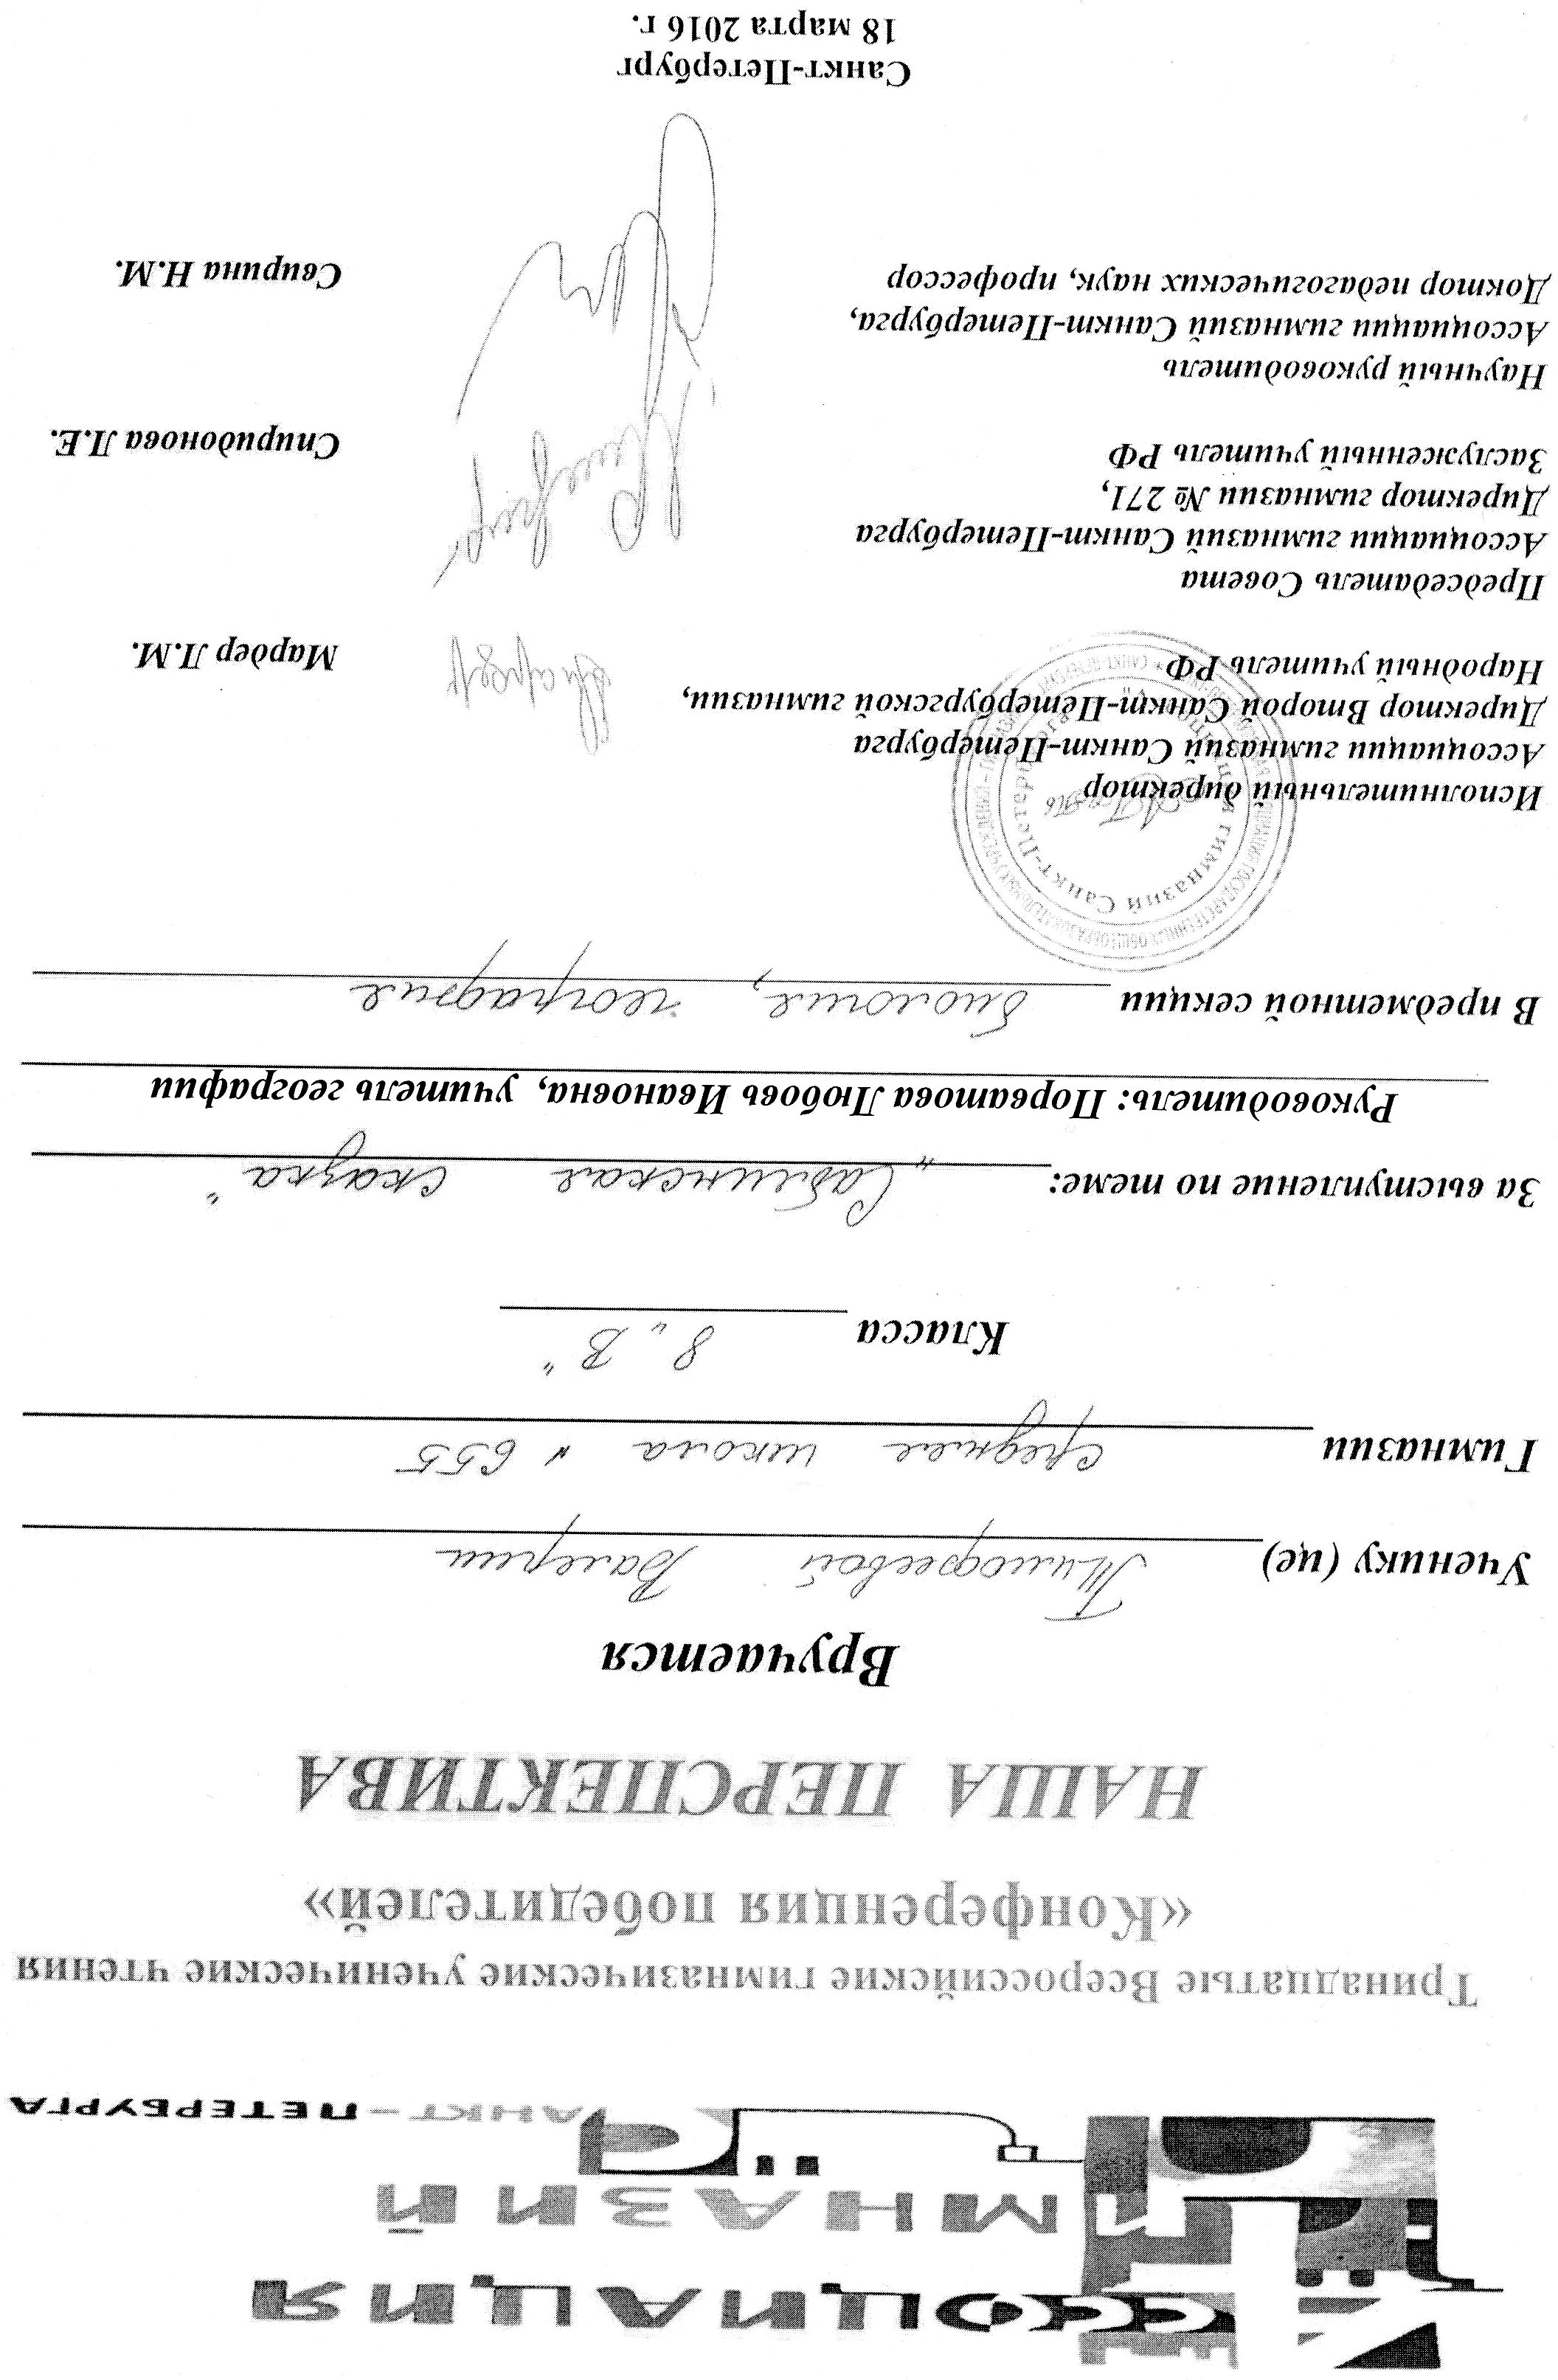 АССОЦИАЦИЯ
ГИМНАЗИЙ
САНКТ-ПЕТЕРБУРГА
Тринадцатые Всероссийские гимназические ученические чтения
«Конференция победителей»
НАША ПЕРСПЕКТИВА
Вручается
Ученику (це) Тимофеевой Валерии
Гимназии средняя школа № 655
8 „В“ Класса
За выступление по теме: „Саблинская сказка“
Руководитель: Порватова Любовь Ивановна, учитель географии
В предметной секции биология, география
Исполнительный директор
Ассоциации гимназий Санкт-Петербурга
Директор Второй Санкт-Петербургской гимназии,
Народный учитель РФ
Мардер Л.М.
Председатель Совета
Ассоциации гимназий Санкт-Петербурга
Директор гимназии № 271,
Заслуженный учитель РФ
Спиридонова Л.Е.
Научный руководитель
Ассоциации гимназий Санкт-Петербурга,
Доктор педагогических наук, профессор
Свирина Н.М.
Санкт-Петербург
18 марта 2016 г.